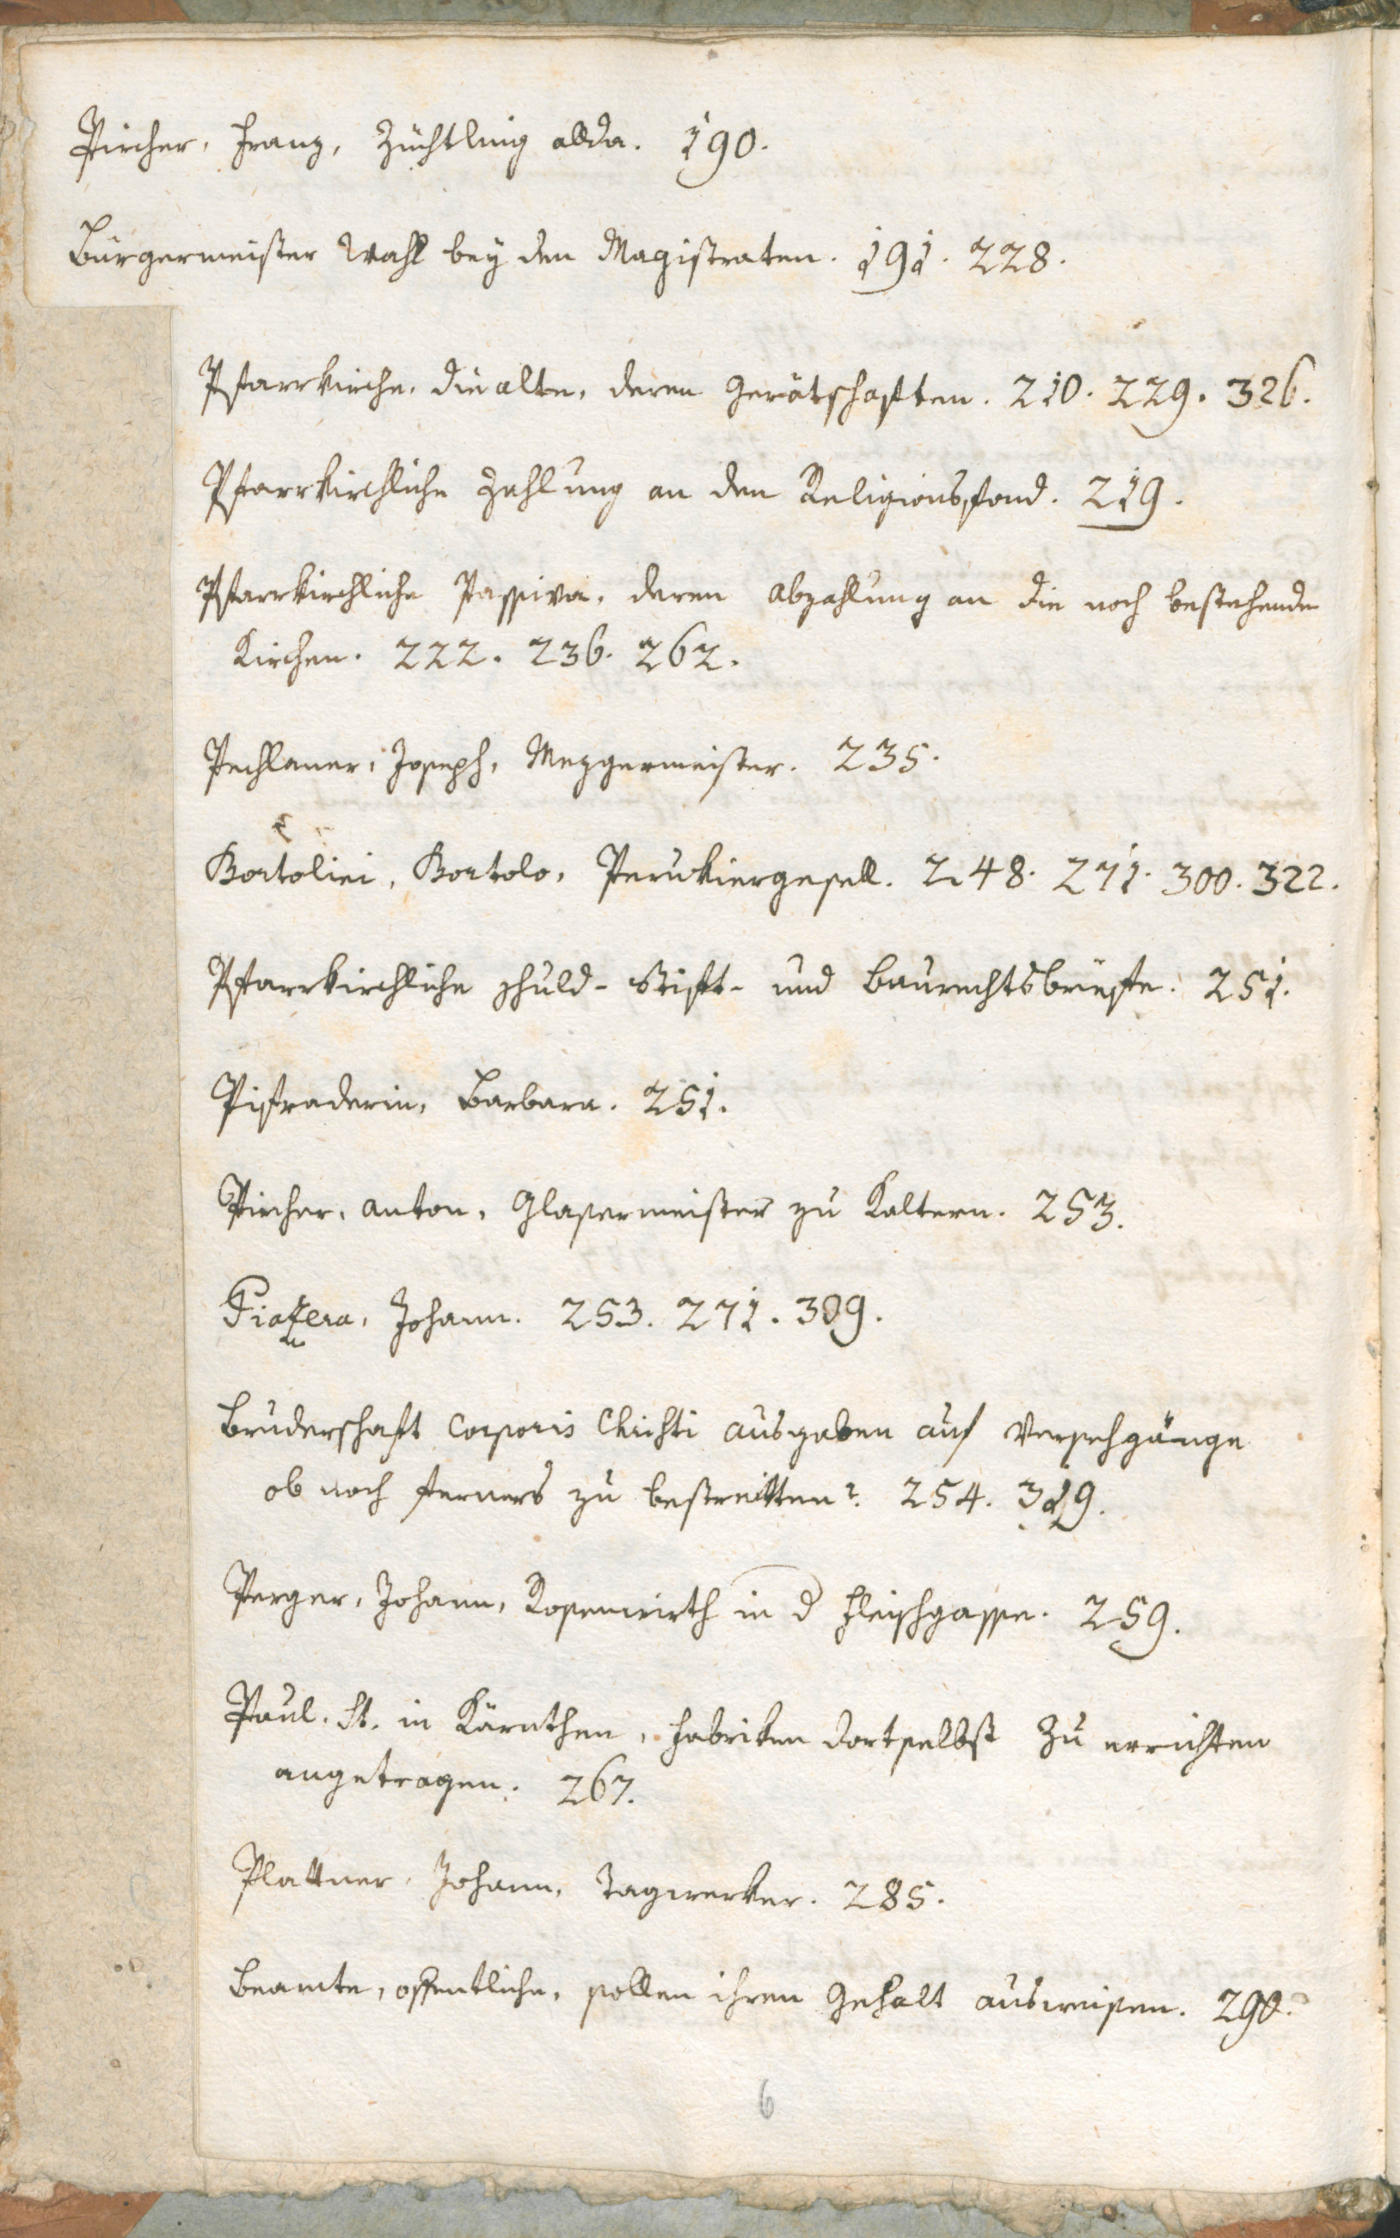 Pircher, Franz, Züchtling allda. 190.
Burgermeister Wahl bey den Magistraten. 191. 228.
Pfarrkirche, die alte, deren Gerätschaften. 210. 229. 326.
Pfarrkirchliche Zahlung an den Religionsfond. 219.
Pfarrkirchliche Passiva, deren Abzahlung an die noch bestehende
Kirchen. 222. 236. 262.
Pechlaner, Joseph, Mezgermeister. 235.
Bortolini, Bortolo, Perukiergesell. 248. 271. 300. 322.
Pfarrkirchliche Schuld- Stift- und Baurechtsbriefe. 251.
Pisraderin, Barbara. 251.
Pircher, Anton, Glasermeister zu Kaltern. 253.
Johann. 253. 271. 309.
Bruderschaft Corporis Christi Ausgaben auf Versehgänge
ob noch ferners zu bestreitten? 254. 319.
Perger, Johann, Rosenwirth in d Fleischgasse. 259.
Paul. St. in Kärnthen, Fabriken dortselbst zu errichten
angetragen. 267.
Plattner, Johann, Tagwerker. 285.
Beamte, offentliche, sollen ihren Gehalt ausweisen. 290.
6